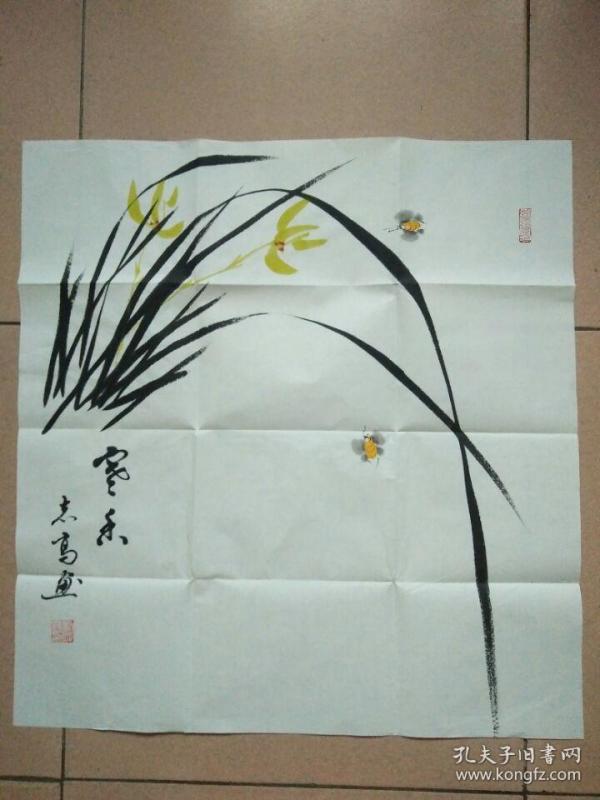 寒香
志高画
孔夫子旧書网
www.kongfz.com